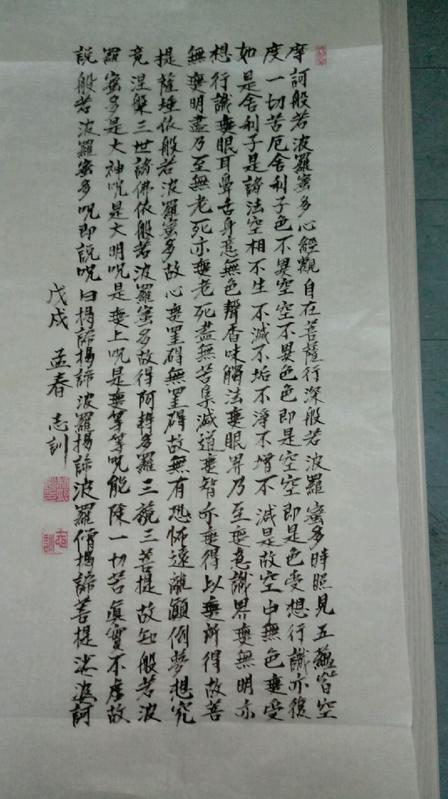 摩訶般若波羅蜜多心經觀自在菩薩行深般若波羅蜜多時照見五蘊皆空
度一切苦厄舍利子色不異空空不異色色即是空空即是色受想行識亦復
如是舍利子是諸法空相不生不滅不垢不淨不增不減是故空中無色無受
想行識無眼耳鼻舌身意無色聲香味觸法無眼界乃至無意識界無無明亦
無無明盡乃至無老死亦無老死盡無苦集滅道無智亦無得以無所得故菩
提薩埵依般若波羅蜜多故心無罣礙無罣礙故無有恐怖遠離顛倒夢想究
竟涅槃三世諸佛依般若波羅蜜多故得阿耨多羅三藐三菩提故知般若波
羅蜜多是大神咒是大明咒是無上咒是無等等咒能除一切苦真實不虛故
說般若波羅蜜多咒即說咒曰揭諦揭諦波羅揭諦波羅僧揭諦菩提娑婆訶
戊戌 孟春 志訓